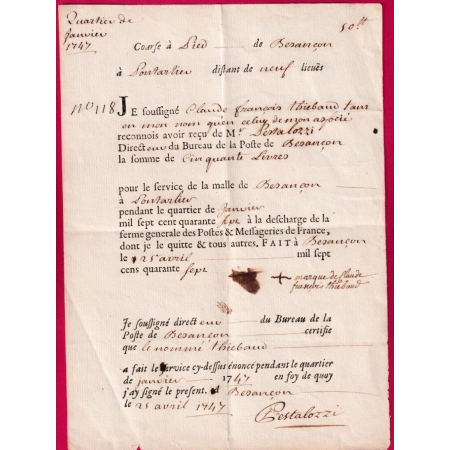 Quartier de
janvier
1747
50 lt
Course à Pied de Besançon
à Pontarlier distant de neuf lieuës
No 118 JE soussigné Claude françois Thiebaud tans
en mon nom qu'en celuy de mon associé
reconnois avoir reçu de Mr. Pestalozzi
Directeur du Bureau de la Poste de Besançon
la somme de Cinquante Livres
pour le service de la malle de Besançon
à Pontarlier
pendant le quartier de janvier
mil sept cent quarante sept à la descharge de la
ferme generale des Postes & Messageries de France,
dont je le quitte & tous autres. FAIT à Besançon
le 25 avril mil sept
cens quarante sept
+ marque de Claude
françois Thiebaud
Je soussigné directeur du Bureau de la
Poste de Besançon certifie
que le nommé Thiebaud
a fait le service cy-dessus énoncé pendant le quartier
de janvier 1747 en foy de quoy
j'ay signé le present. A Besançon
le 25 avril 1747
Pestalozzi